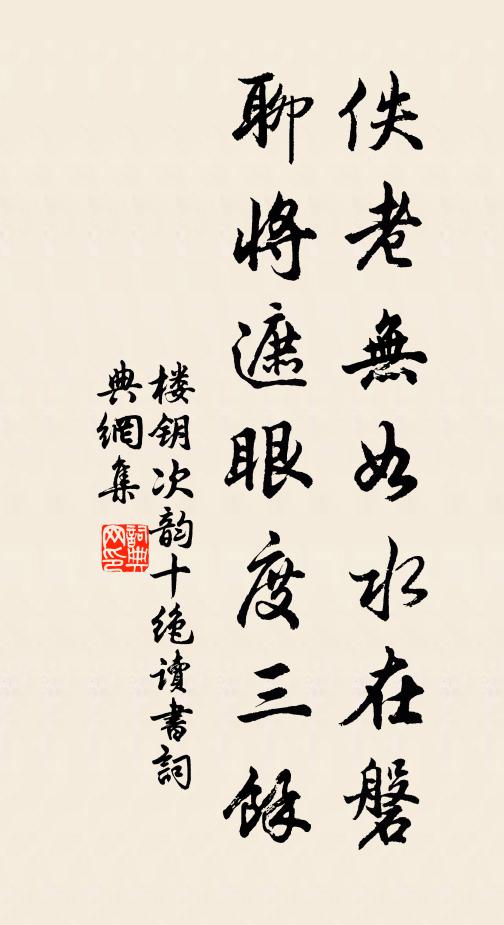 佚老無如水在磐
聊將遮眼度三餘
楼钥次韵十绝讀書詞
典網集
詞典网印